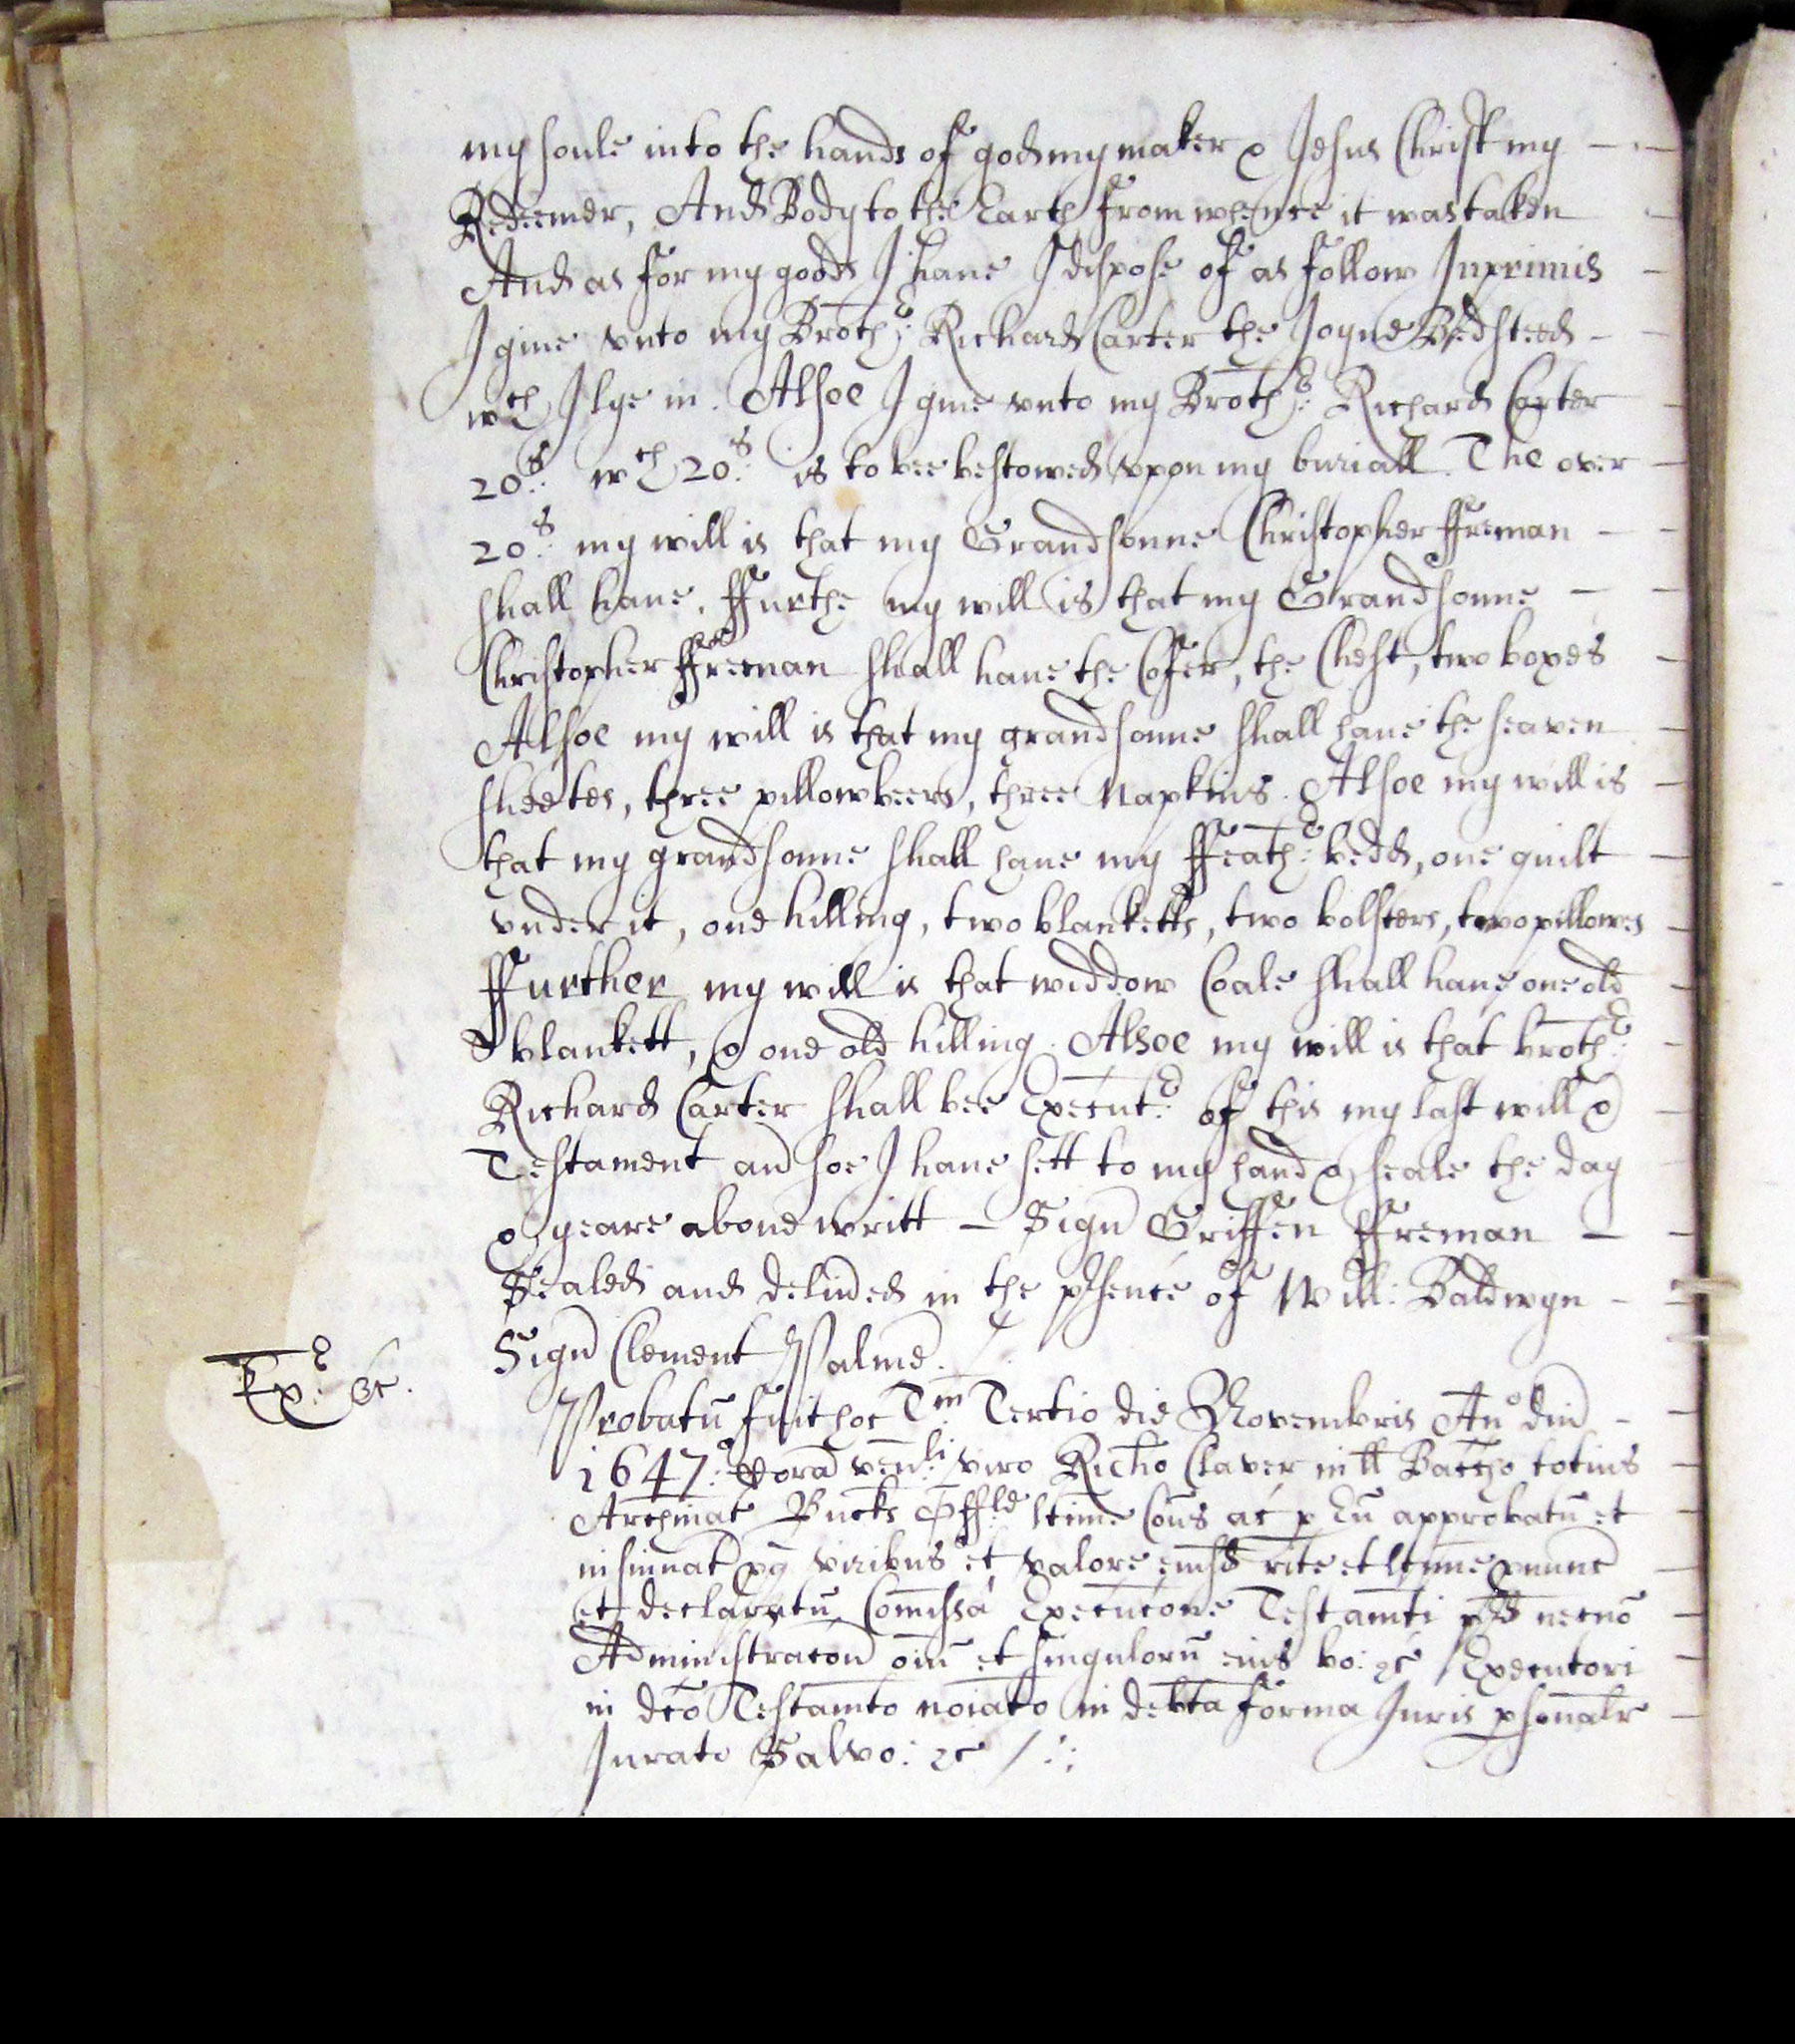 my soule into the hands of god my maker & Jesus Christ my
Redeemer, And Body to the Earth from whence it was taken
And as for my goods I haue I dispose of as follow Inprimis
I giue vnto my Broth:r Richard Carter the Joyne Bedsteed
wch I lye in. Alsoe I giue vnto my Broth:r Richard Carter
20s: wch 20s: is to bee bestowed vpon my buriall. The over
20s: my will is that my Grandsonne Christopher ffreman
shall haue. ffurthe my will is that my Grandsonne
Christopher ffreeman shall haue the Cofer, the Chest, two boxes
Alsoe my will is that my grandsonne shall haue the seaven
sheetes, three pillowbeers, three Napkins. Alsoe my will is
that my grandsonne shall haue my ffeath:r bedd, one quilt
vnder it, one hilling, two blanketts, two bolsters, two pillowes
ffurther my will is that widdow Coale shall haue one old
blankett, & one old hilling. Alsoe my will is that broth:r
Richard Carter shall bee Execut:r of this my last will &
Testament and soe I haue sett to my hand & seale the day
& yeare aboue writt – Sign Griffen ffreman
Sealed and deliued in the psence of Will: Baldwyn
Sign Clement Palmer.
Ex:r &c.
Probatū fuit hoc Tm Tertio die Novembris Ano dni
1647: Corā ven:li viro Richo Claver in ll Baccho totius
Archinat Bucks Offle ltime Cons ac p Eū approbatū et
insinuat p viribus et valore eiusd rite et ltime pnunc
et declaratū Comissa Execucone Testamti pd necnō
Administracon oīu et singulorū eius bo: &c Executori
in dco Testamto noiato in debta forma Juris psonalr
Jurato Salvo: &c /: